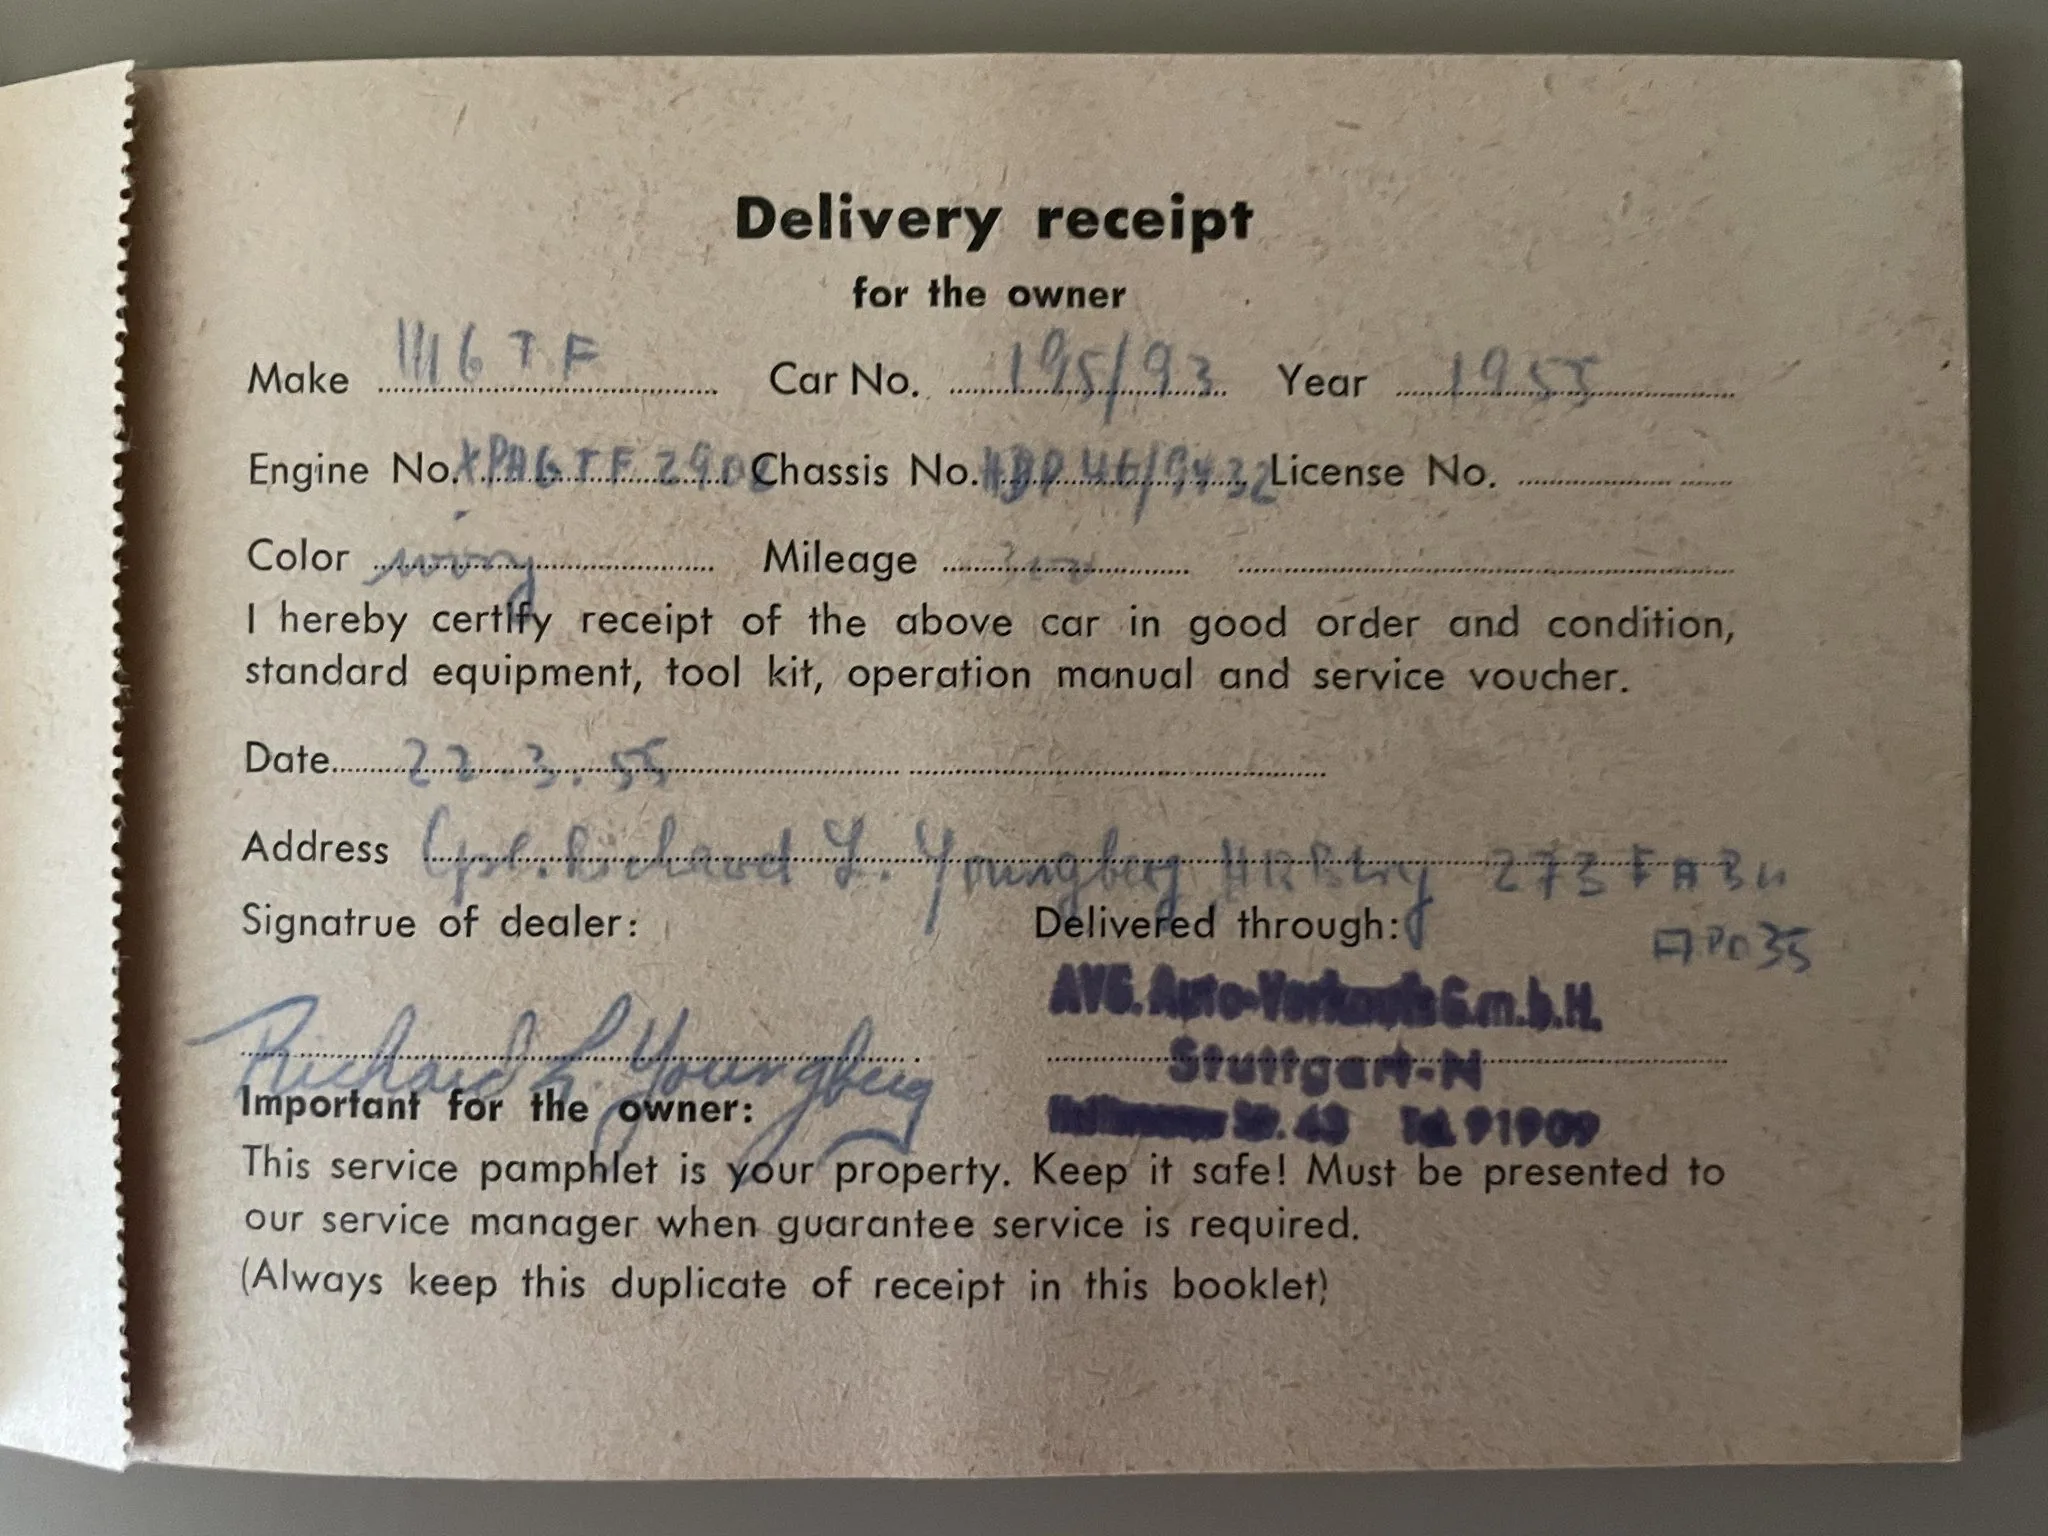 Delivery receipt
for the owner
Make MG T.F Car No. 195/93 Year 1955
Engine No. XPAG TF 2902 Chassis No. HDP 46/9432 License No.
Color ivory Mileage
I hereby certify receipt of the above car in good order and condition,
standard equipment, tool kit, operation manual and service voucher.
Date 22.3.55
Address Cpl. Richard L. Youngberg HR Btry 273 FABn
APO 35
Signatrue of dealer: Delivered through:
AVG. Auto-Verkaufs G.m.b.H.
Richard L. Youngberg Stuttgart-N
Str. 43 Tel. 91909
Important for the owner:
This service pamphlet is your property. Keep it safe! Must be presented to
our service manager when guarantee service is required.
(Always keep this duplicate of receipt in this booklet)